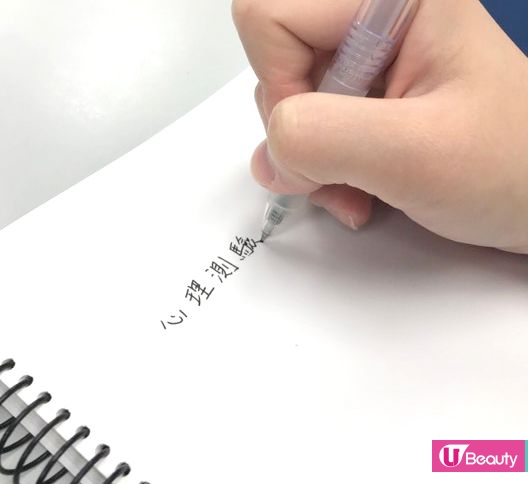 心理測驗
U Beauty